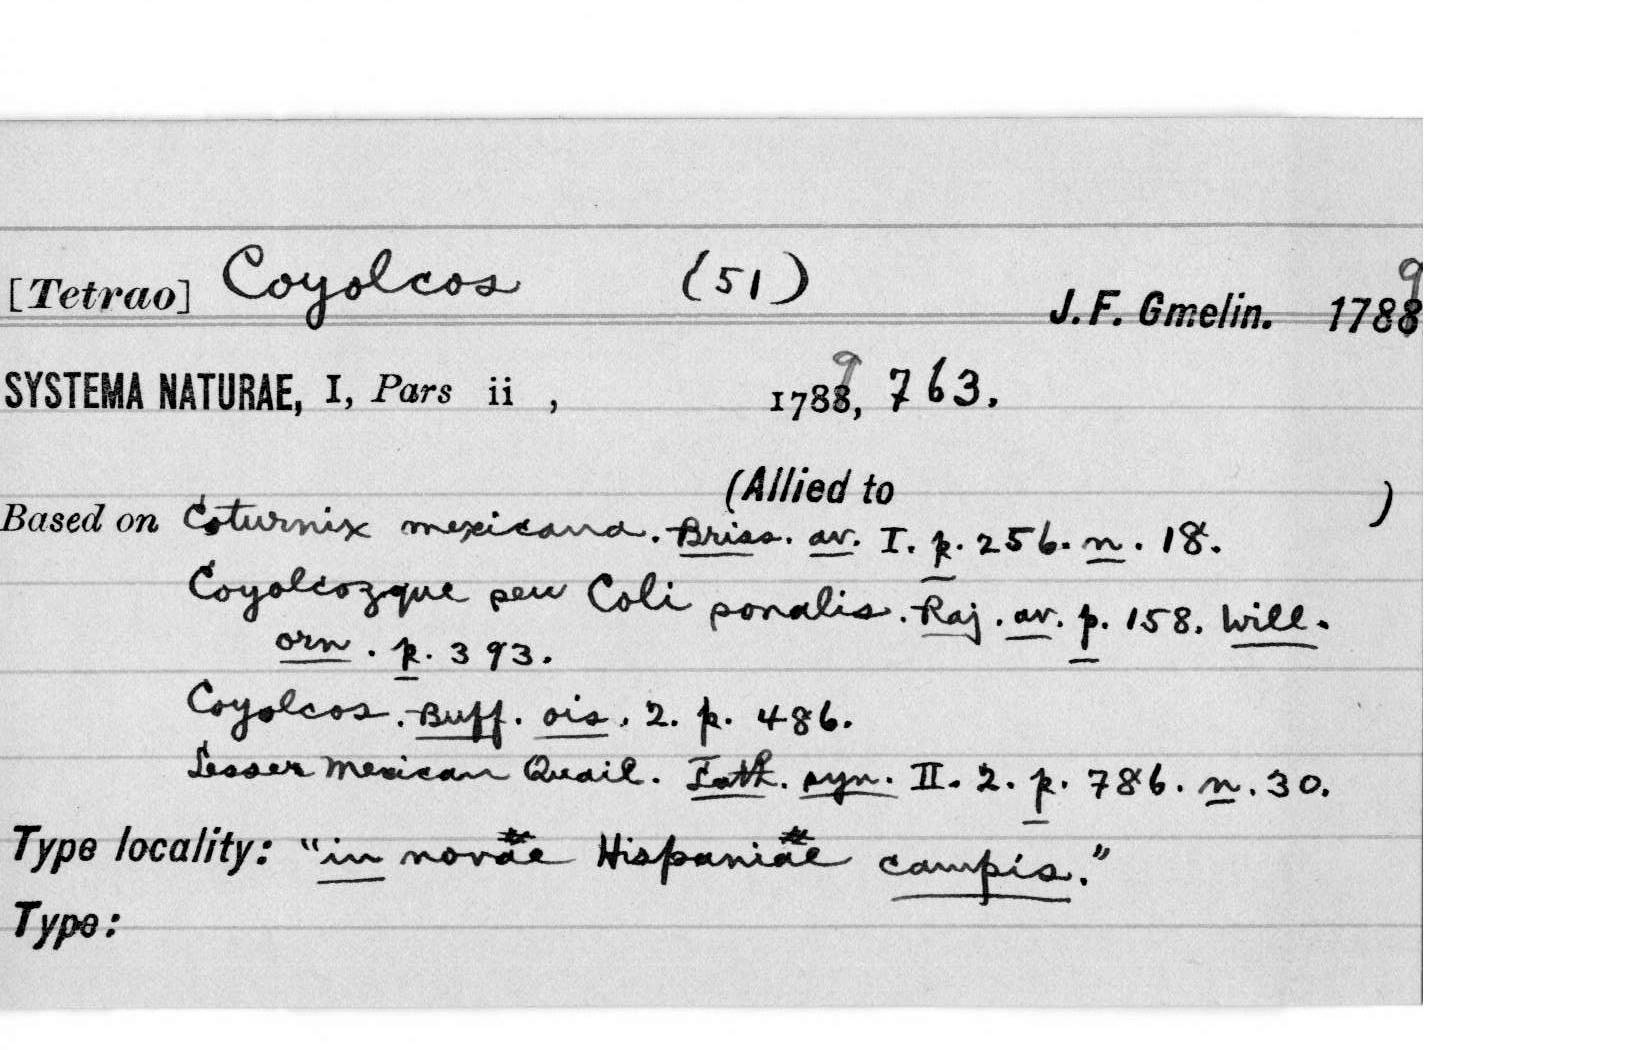 [Tetrao] Coyolcos (51) J. F. Gmelin. 1789
SYSTEMA NATURAE, I, Pars ii , 1789, 763.
(Allied to )
Based on Coturnix mexicana. Briss. av. I. p. 256. n. 18.
Coyolcozque seu Coli sonalis. Raj. av. p. 158. Will.
orn. p. 393.
Coyolcos. Buff. ois. 2. p. 486.
Lesser Mexican Quail. Lath. syn. II. 2. p. 786. n. 30.
Type locality: "in novae Hispaniae campis."
Type: